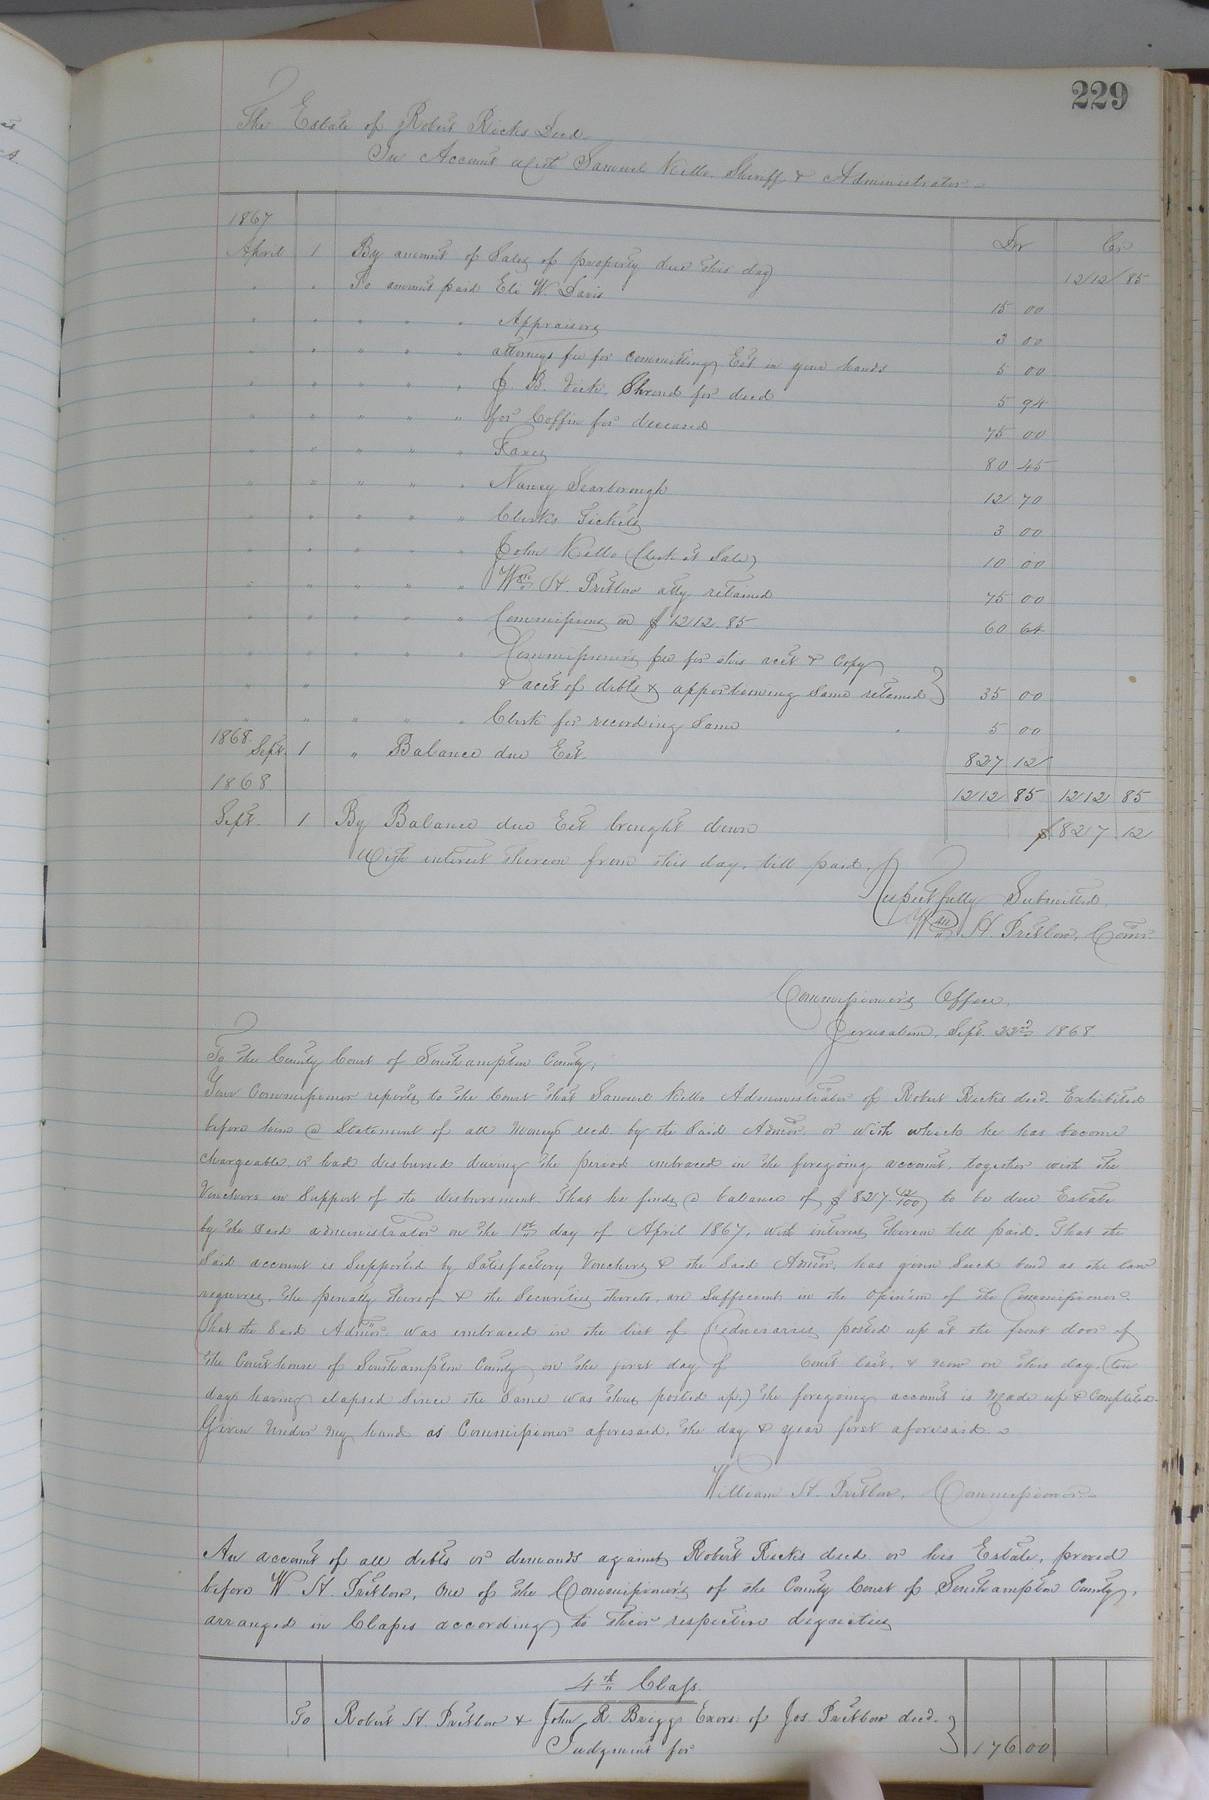 229
The Estate of Robert Ricks Decd.
In Account with Samuel Kello Sheriff & Administrator
1867
Dr Cr
April 1 By amount of Sales of property due this day 1212 85
" " To amount paid Eli W. Davis 15 00
" " " " " Appraisors 3 00
" " " " " attorneys fee for committing Est in your hands 5 00
" " " " " J B. Vick, Shroud for decd 5 94
" " " " " for Coffin for deceased 75 00
" " " " " Taxes 80 45
" " " " " Nancy Scarborough 12 70
" " " " " Clerks Tickets 3 00
" " " " " John Kello (Clerk at Sale) 10 00
" " " " " Wm H. Pretlow atty retained 75 00
" " " " " Commissions on $1212.85 60 64
" " " " " Commissioners fee for this acct & Copy
" " & acct of debts & apportioning same retained } 35 00
" " " " " Clerk for recording Same 5 00
1868 Sept. 1 " Balance due Est. 827 12
1868 1212 85 1212 85
Sept. 1 By Balance due Est brought down $827 12
With interest thereon from this day, till paid.
Respectfully Submitted,
Wm H. Pretlow, Comr.
Commissioner's Office,
Jerusalem, Sept. 22nd 1868.
To the County Court of Southampton County,
Your Commissioner reports to the Court that Samuel Kello Administrator of Robert Ricks decd. Exhibited
before him a Statement of all Moneys recd. by the said Admor. or with which he has become
chargeable, or had disbursed during the period embraced in the foregoing account, together with the
Vouchers in Support of its disbursment. That he finds a balance of $827.12/100 to be due Estate
by the said administrator on the 1st day of April 1867, with interest thereon till paid. That the
Said account is Supported by Satisfactory Vouchers & the Said Admor. has given Such bond as the law
requires, the penalty thereof & the Securities thereto, are Sufficient in the Opinion of the Commissioner.
That the Said Admor. was embraced in the list of Fiduciaries posted up at the front door of
the Courthouse of Southampton County on the first day of Court last, & now on this day, (ten
days having elapsed Since the Same was thus posted up,) the foregoing account is Made up & Completed.
Given Under My hand as Commissioner aforesaid, the day & year first aforesaid.
William H. Pretlow, Commissioner
An account of all debts or demands against Robert Ricks decd. or his Estate, proved
before W H. Pretlow, One of the Commissioners of the County Court of Southampton County,
arranged in Classes according to their respective dignities
4th Class.
To Robert H. Pretlow & John R. Briggs Exors. of Jos. Pretlow decd.
Judgment for } 176 00